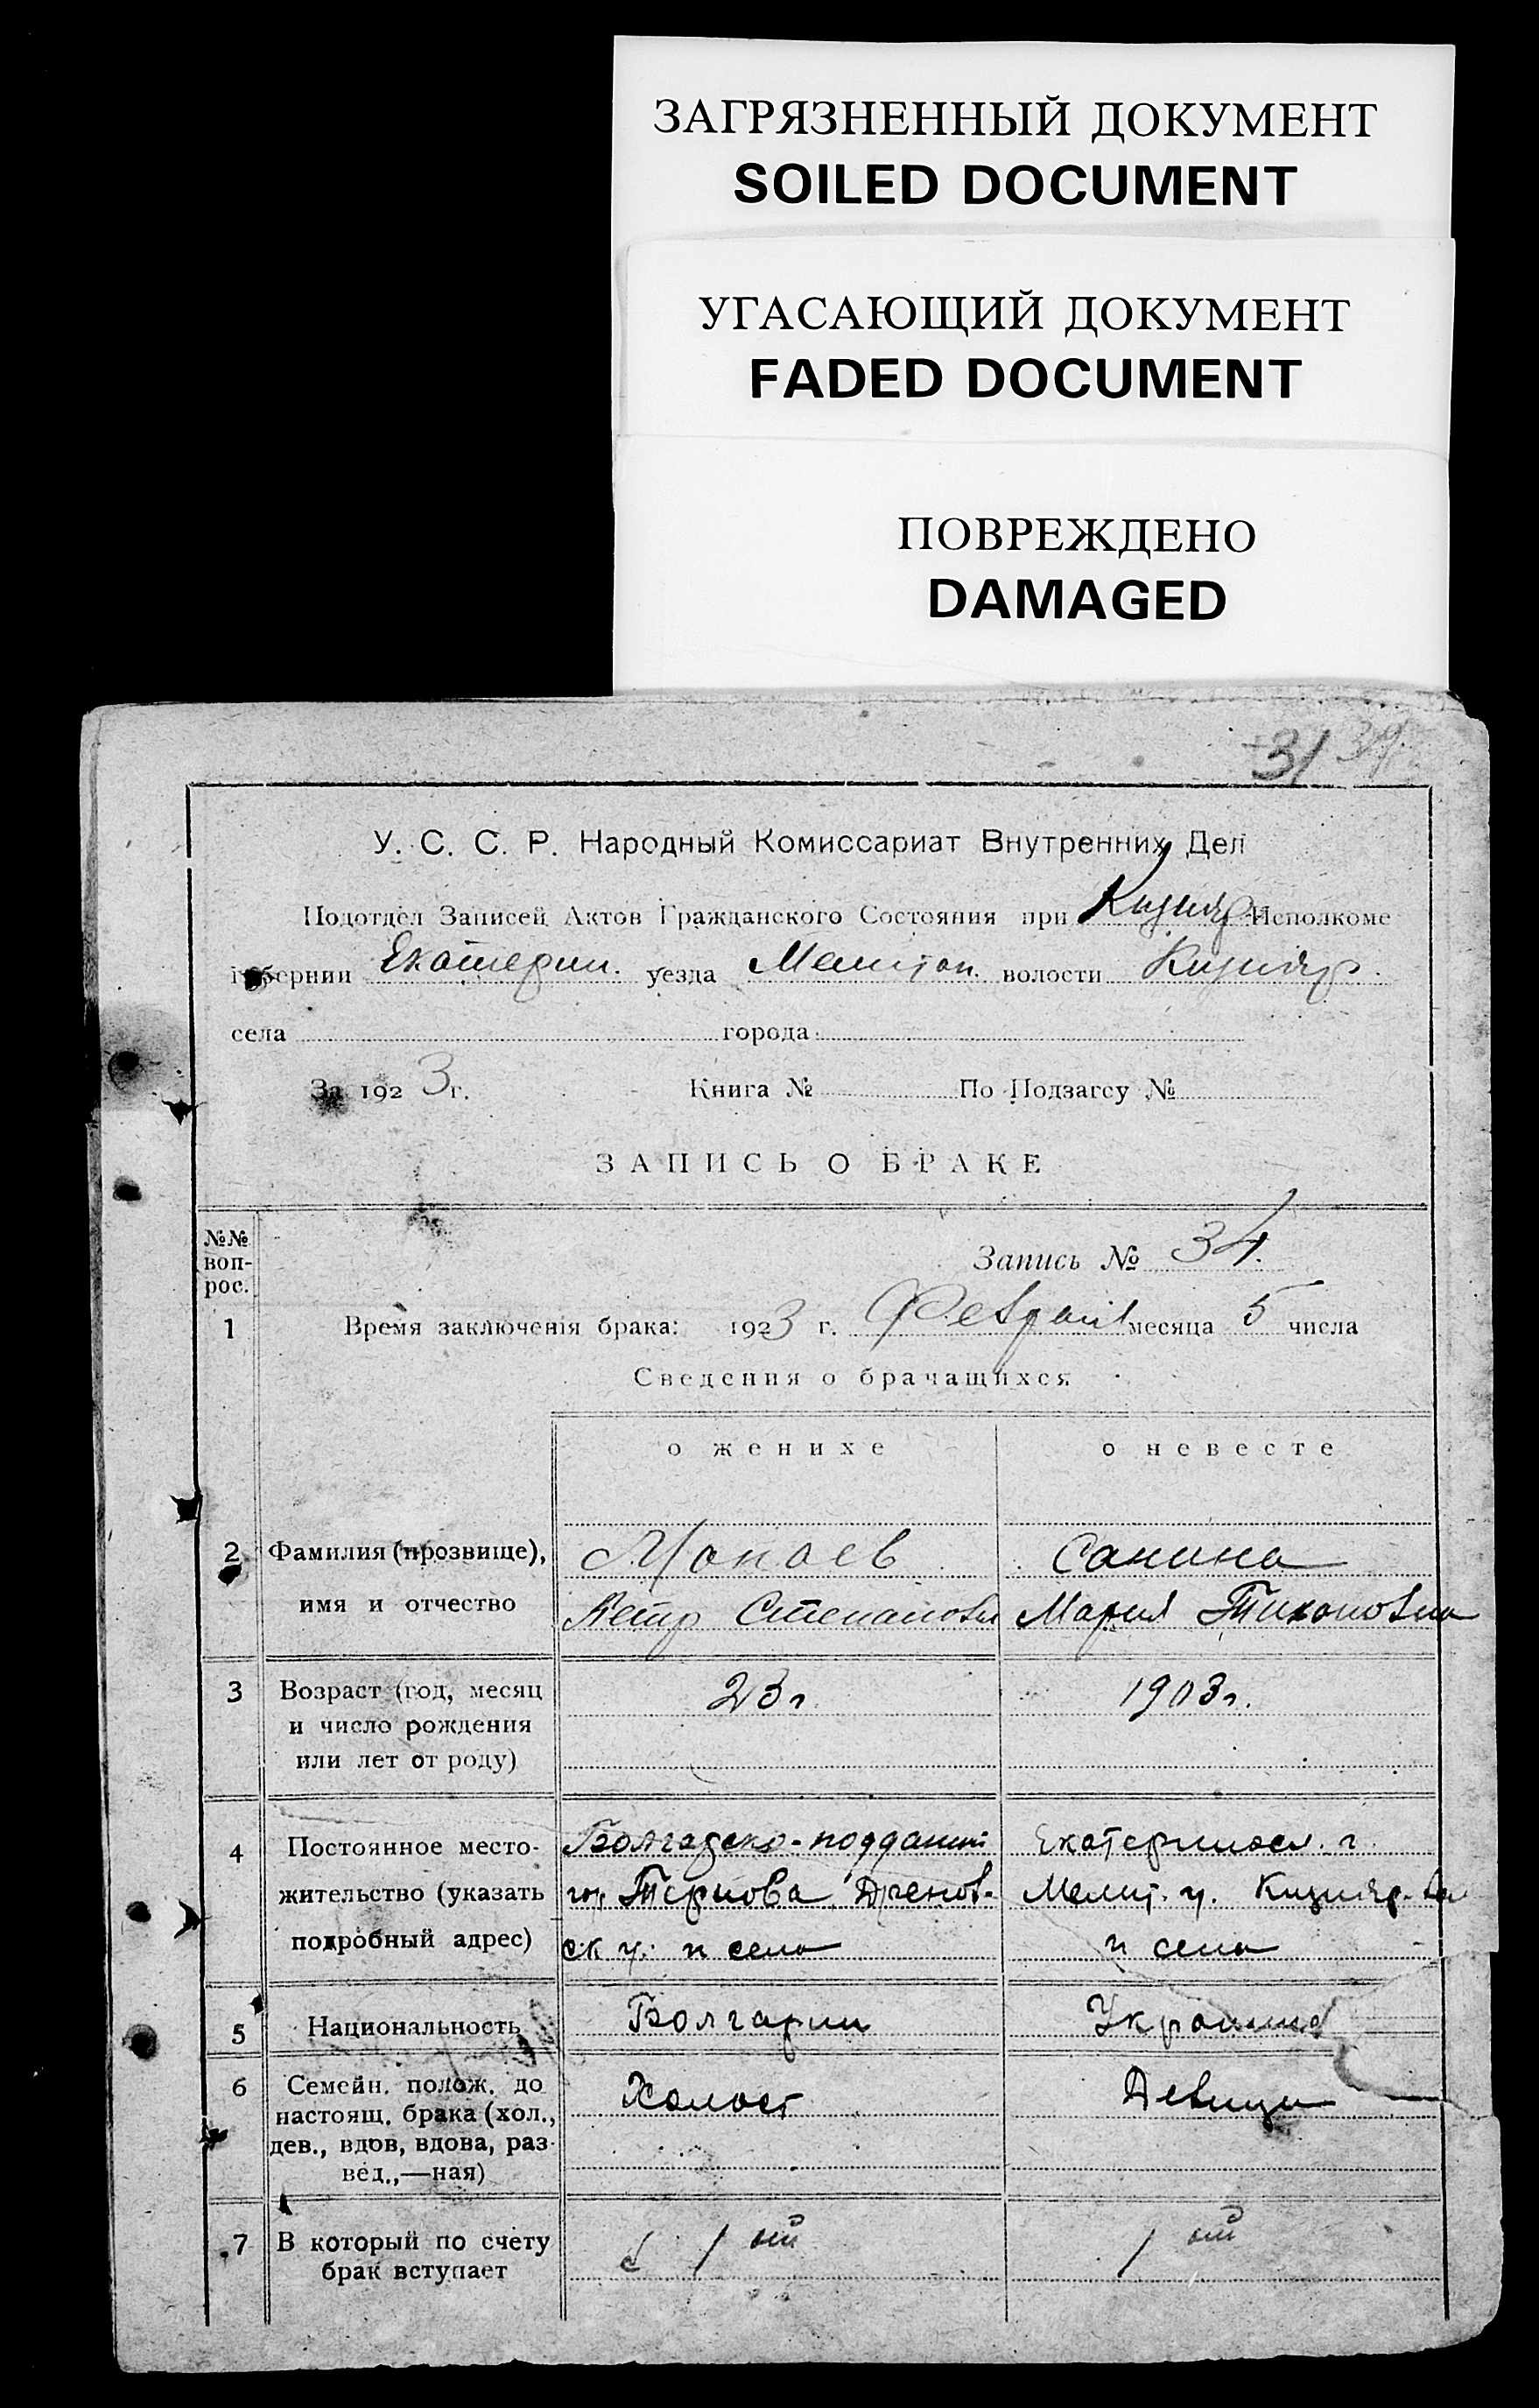 ЗАГРЯЗНЕННЫЙ ДОКУМЕНТ
SOILED DOCUMENT
УГАСАЮЩИЙ ДОКУМЕНТ
FADED DOCUMENT
ПОВРЕЖДЕНО
DAMAGED
31
У. С. С. Р. Народный Комиссариат Внутренних Дел
Подотдел Записей Актов Гражданского Состояния при Кизияр. Исполкоме
губернии Екатерин. уезда Мелитоп. волости Кизияр.
села города
За 1923 г. Книга № По Подзагсу №
ЗАПИСЬ О БРАКЕ
№№ воп-рос.
Запись № 34.
1 Время заключенія брака: 1923 г. Февраля месяца 5 числа
Сведения о брачащихся
о женихе о невесте
2 Фамилия (прозвище), Санина
имя и отчество Петр Степанови Мария Тихоновна
3 Возраст (год, месяц 23 г 1903 г.
и число рождения
или лет от роду)
4 Постоянное место- Болгарско-подданый Екатериносл. г.
жительство (указать Тернова Дреновс- Мелит. у. Кизияр.
подробный адрес) ск у. и села и села
5 Национальность Болгарин Украин
6 Семейн. полож. до Холост Девица
настоящ. брака (хол.,
дев., вдов, вдова, раз-
вед.,—ная)
7 В который по счету 1 ый 1 ый
брак вступает